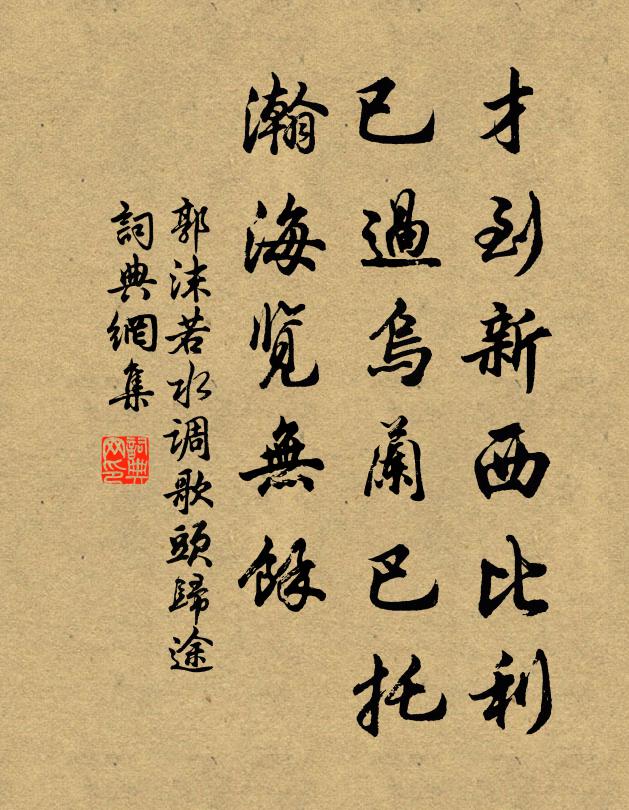 才到新西比利
已過烏蘭巴托
瀚海览無餘
郭沫若水调歌頭歸途
詞典網集
詞典网印